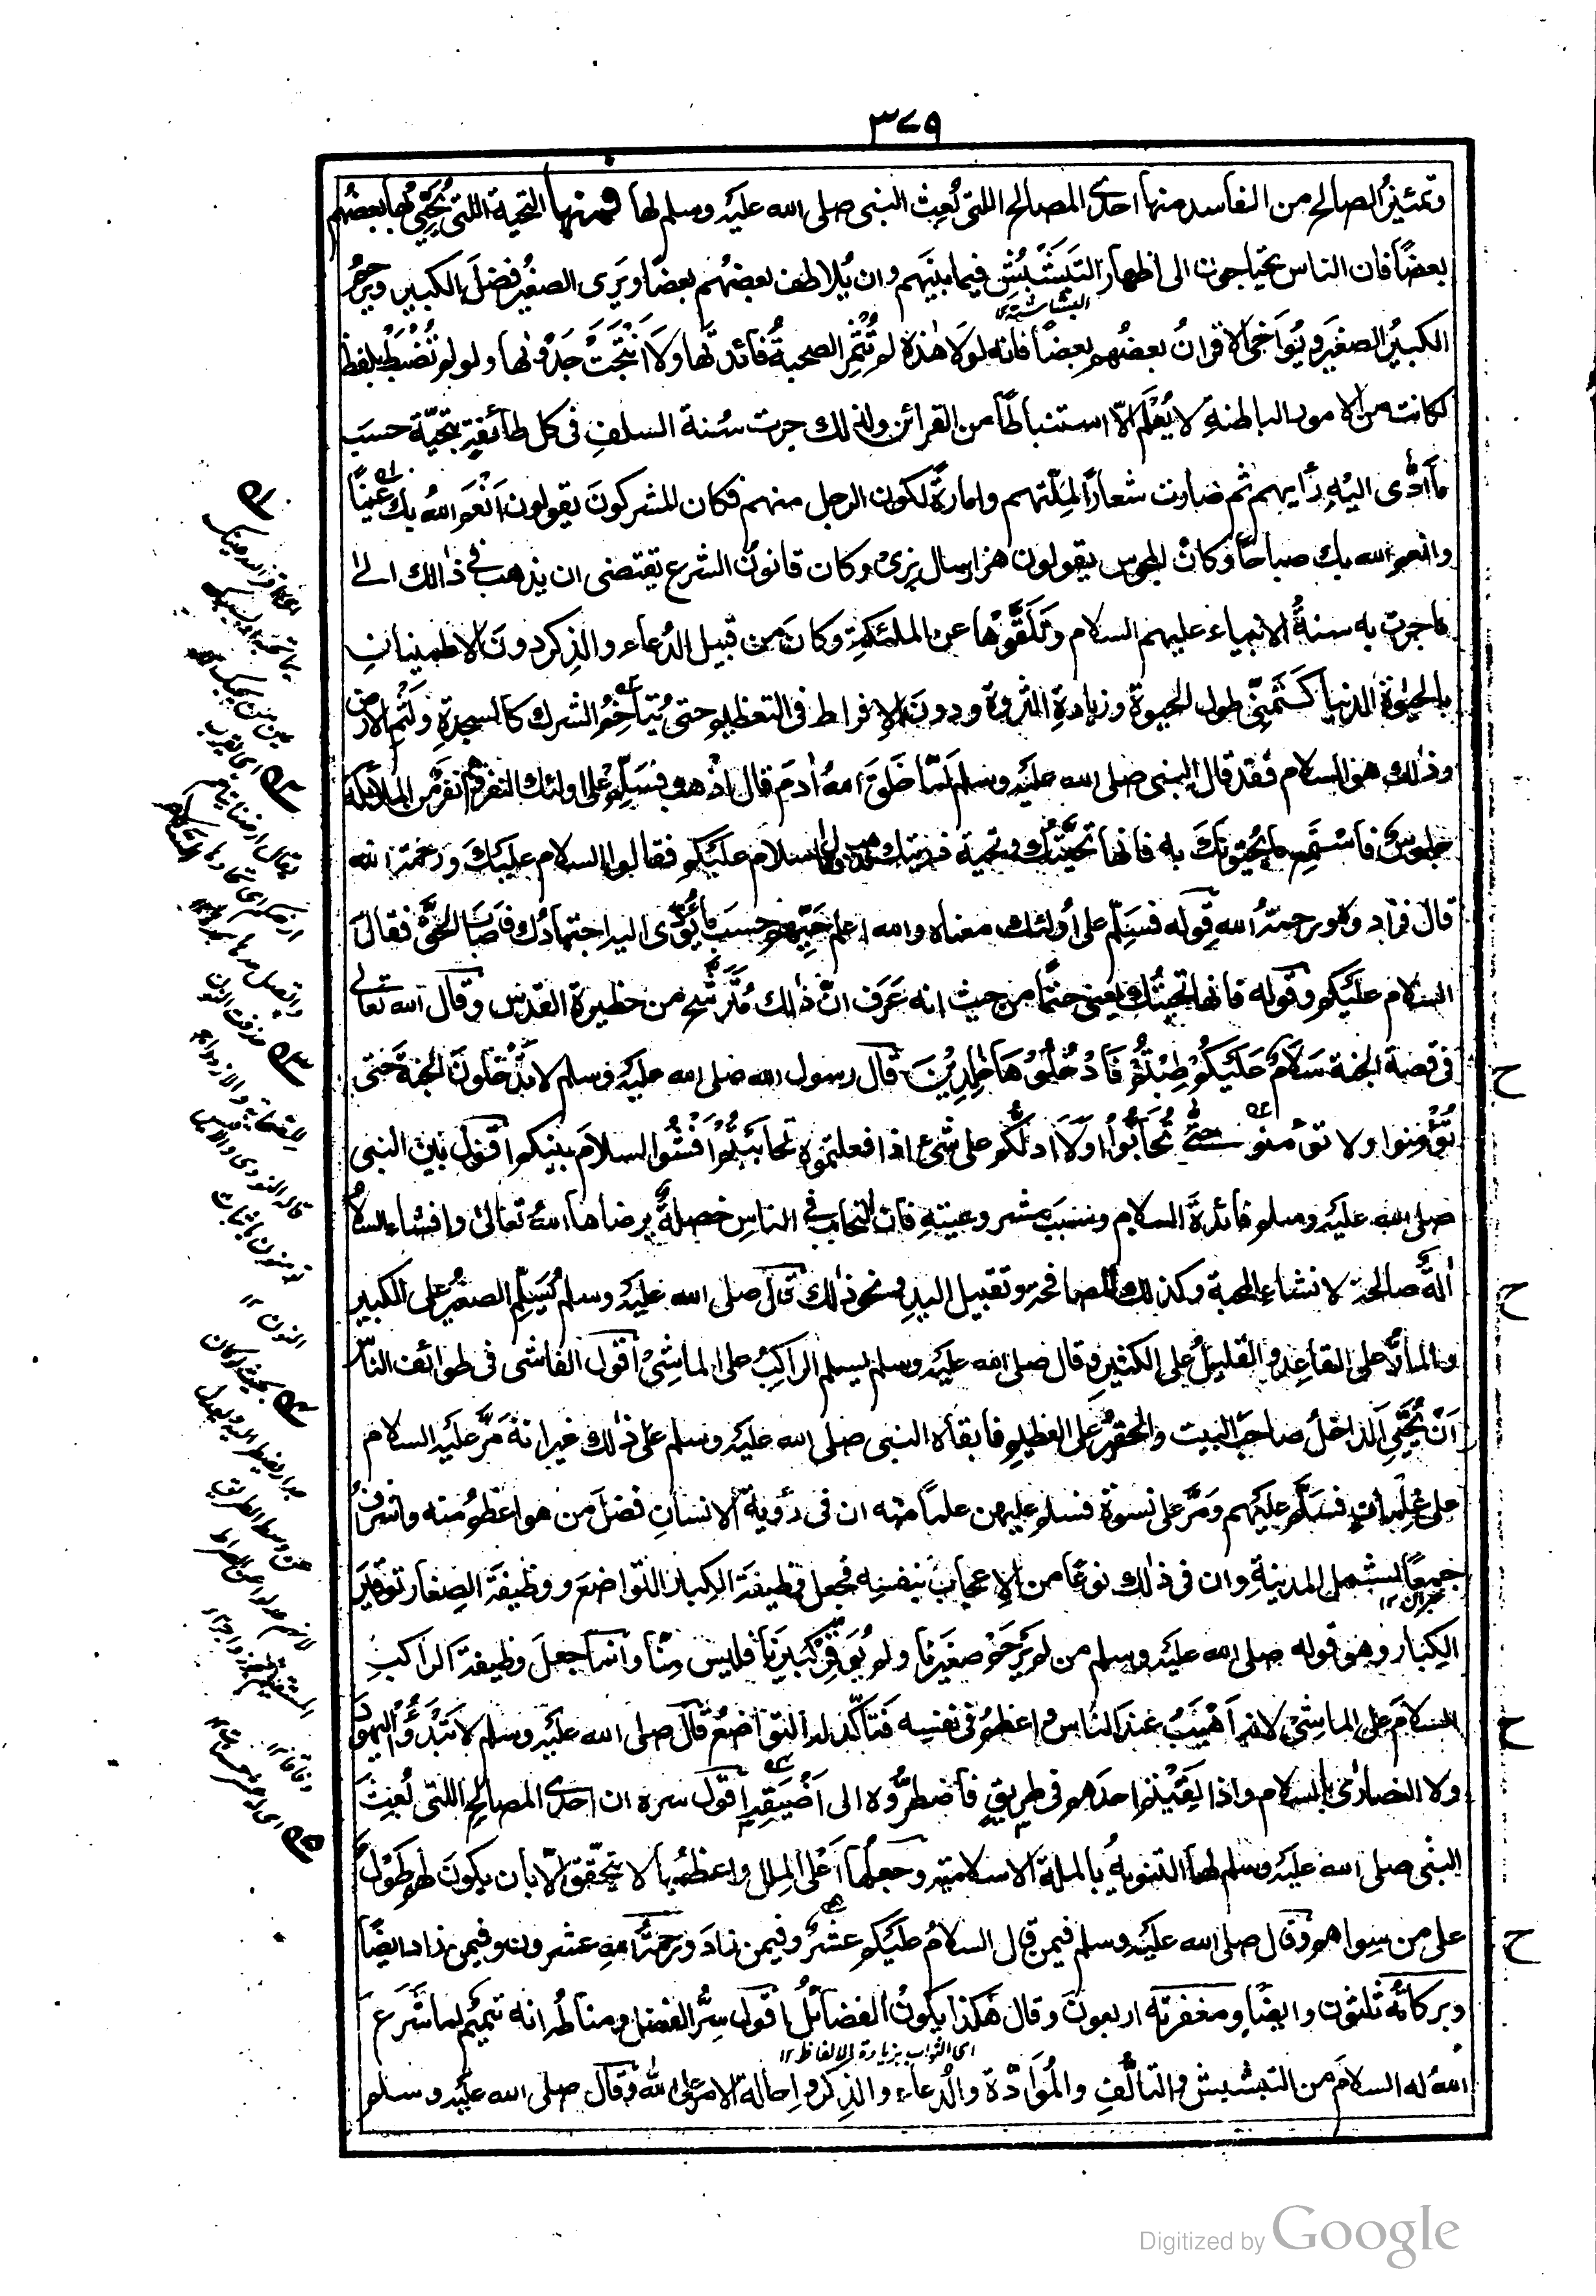 ٣٧٩
وتمئيز الصالح من الفاسد منها احدى المصالح اللتى بُعِث النبى صلى الله عليه وسلم لها فمنها التحية اللتى يُحَيِّى بها بعضُهم
بعضًا فان الناس يحتاجون الى اظهار التَبَشْبُشِ فيما بينهم وان يُلاطف بعضُهم بعضًا ويَرى الصغيرُ فضلَ الكبير ويرحمُ
البشاشة
الكبيرُ الصغيرَ ويُوَاخى الاقرانُ بعضُهم بعضًا فانه لولا هٰذه لم تُثْمِرِ الصحبةُ فائدتَها ولا انْتَجَتْ جَدْوٰىها ولو لم تُضْبَطْ بلفظ
لكانت من الامور الباطنةِ لا يُعْلَم الّا استنباطًا من القرائن ولذلك جرت سُنة السلفِ فى كل طائفةٍ بتحيّة حسبَ
ما ادّٰى اليه رأيهم ثم صارت شعارًا لمِلّتهم وامارةً لكون الرجل منهم فكان المشركونَ يقولون اَنْعَمَ اللهُ بك عَيْنًا
وانعم الله بك صباحًا وكان المجوس يقولون هزار سال بزى وكان قانونُ الشرع يقتضى ان يذهب فى ذالك الى
ما جرت به سنةُ الانبياء عليهم السلام وتَلَقَّوْها عن الملٰئكةِ وكانَ من قبيل الدُعاء والذِكر دونَ الاطمينانِ
بالحيٰوة الدنيا كَتَمَنِّى طول الحيوة وزيادةِ الثروة ودونَ الافراط فى التعظيم حتى يُتَاخِمَ الشرك كالسجدةِ ولَثْمِ الارض
وذٰلك هو السلام فقد قال النبى صلى الله عليه وسلم لَمّا خَلَقَ اللهُ اٰدمَ قال اذْهب فسَلِّم علٰى اولئك النفر وهم نفر من الملائكة
جلوسٌ فاسْتَمِعْ ما يُحَيُّونَكَ به فانها تحيّتُك وتحية ذريتك فذهب فقال السلام عليكم فقالوا السلام عليك ورحمة الله
قال فزادوه ورحمةُ الله قوله فسَلِّم على اُولئك معناه والله اعلم حَيِّهم حسبَ ما يُؤَدّى اليه اجتهادُك فاصابَ الحقَّ فقال
السلام عليكم وقوله فانها تحيتُك يعنى حتمًا من حيث انه عَرَف انّ ذٰلك مُتَرَشِّح من حظيرة القدس وقال الله تعالٰى
فى قصة الجنة سَلَامٌ عَلَيْكُمْ طِبْتُمْ فَادْخُلُوْهَا خٰلِدِيْنَ قال رسول الله صلى الله عليه وسلم لا تدخلونَ الجنةَ حَتى
تُؤْمِنوا ولا تؤمنو حتىّٰ تَحَابُّوا اولَا ادلُّكم على شئ اذا فعلتموه تحاببتُم اَفْشُوا السلامَ بينكم اقول بيّن النبى
صلى الله عليه وسلم فائدةَ السلام وسببَ مشروعيتهِ فان التحابب فى الناس خصلةٌ يرضاها اللهُ تعالىٰ وافشاء السلام
اٰلةٌ صالحة لانشاء المحبة وكذلك المصافحة وتقبيل اليد ونحو ذٰلك قال صلى الله عليه وسلم يُسَلِّم الصغيرُ على الكبير
والمارُّ على القاعدِ والقليلُ على الكثيرِ وقال صلى الله عليه وسلم يسلم الراكبُ على الماشِىْ اقول الفاشى فى طوائف الناس
اَنْ يُحَيِّى الداخلُ صاحبَ البيت والحقيرُ على العظيم فابقاه النبى صلى الله عليه وسلم على ذٰلك غير انهُ مَرَّ عليه السلام
على غِلْمانٍ فسلّم عليهم وَمَرَّ على نسوة فسلم عليهن علمًا منه ان فى رؤية الانسانِ فضلَ من هو اعظمُ منه واشرفُ
جمعًا لشمل المدينة وان فى ذٰلك نوعًا من الاعجاب بنفسِه فجعل وظيفَةَ الكِبار التواضعَ ووظيفَةَ الصِغار توقيرَ
الكِبار وهو قوله صلى الله عليه وسلم من لم يَرْحَمْ صغيرَنا ولم يُوَقِّرْ كبيرَنا فليس مِنّا وانما جعلَ وظيفةَ الراكب
السلامَ على الماشِىْ لانه اَهْيَبُ عندَ الناس واعظمُ فى نفسِه فتاكّد له التواضعُ قال صلى الله عليه وسلم لا تَبْدَؤُا اليهودَ
ولا النصارٰى بالسلام واذا لَقِيْتُم احدَهم فى طريقٍ فاضطرُّوه الى اَضْيَقِه اقول سره ان احدى المصالح اللتى بُعِثَ
النبى صلى الله عليه وسلم لها التنويهُ بالملة الاسلامية وجعلُها اَعْلَى المِلل واعظمَها لا يتحقّق الّا بان يكونَ لهم طَوْلٌ
على من سِواهم وقال صلى الله عليه وسلم فيمن قال السلامُ عليكم عشرٌ وفيمن زادَ ورحمةُ الله عشرون وفيمن زاد ايضًا
وبركاتُه ثلٰثون وايضًا ومغفرتُه اربعونَ وقال هٰكذا يكونُ الفضائلُ اقول سِرُّ الفضل ومناطُه انه تتميم لما شَرَعَ
اى الثواب بزيادة الالفاظ ١٢
اللهُ له السلامَ من التبشيش والتألُّفِ والمُوَادّة والدُعاء والذِكر واحالة الامر على الله وقال صلى الله عليه وسلم
ح
ح
ح
ح
Digitized by Google